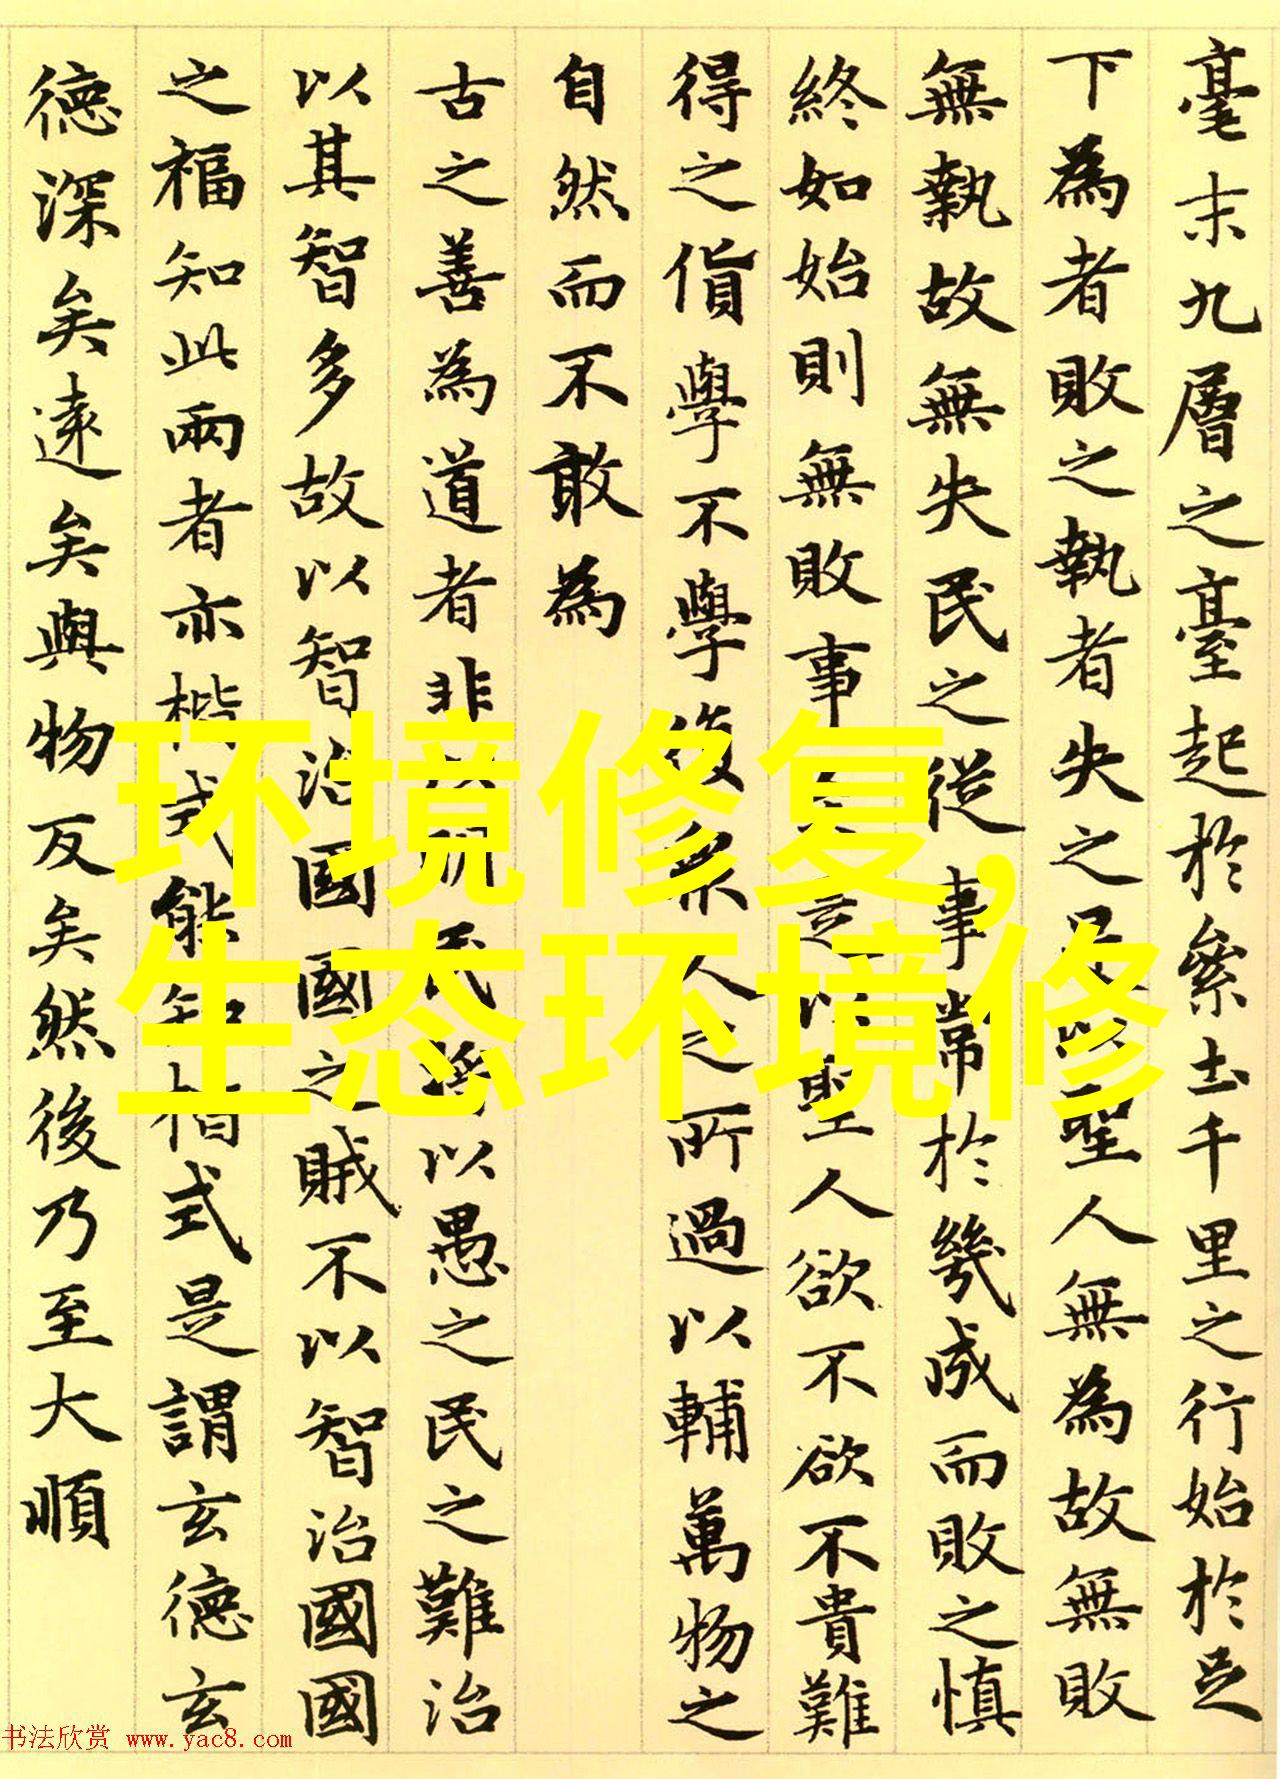 毫末九層之臺起於絫土千里之行始於足
下為者敗之執者失之是以聖人無為故無敗
無執故無失民之從事常於幾成而敗之慎
終如始則無敗事矣是以聖人欲不欲不貴難
得之貨學不學復衆人之所過以輔萬物之
自然而不敢為
古之善為道者非以明民將以愚之民之難治
以其智多故以智治國國之賊不以智治國國
之福知此兩者亦楷式能知楷式是謂玄德玄
德深矣遠矣與物反矣然後乃至大順
环境修复,
生态环境修
书法欣赏 www.yac8.com